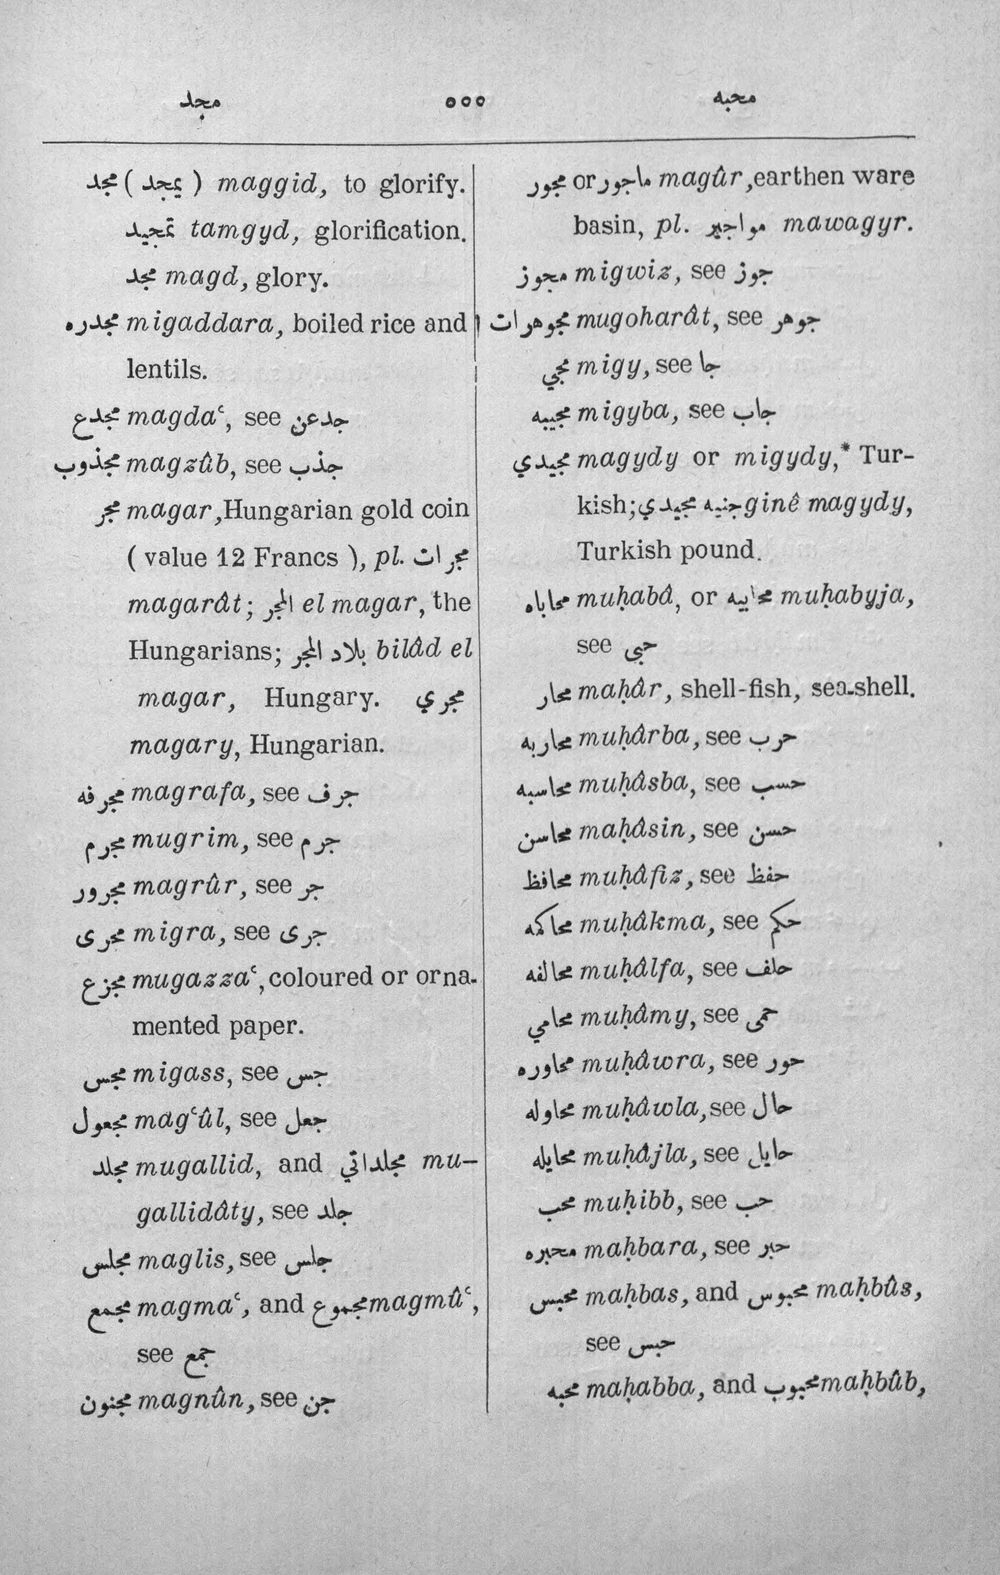 مجد ٥٥٥ محبه
مجد ( يمجد ) maggid, to glorify.
تمجيد tamgyd, glorification.
مجد magd, glory.
مجدره migaddara, boiled rice and
lentils.
مجدع magdaʿ, see جدعن
مجذوب magzûb, see جذب
مجر magar, Hungarian gold coin
( value 12 Francs ), pl. مجرات
magarât; المجر el magar, the
Hungarians; بلاد المجر bilâd el
magar, Hungary. مجري
magary, Hungarian.
مجرفه magrafa, see جرف
مجرم mugrim, see جرم
مجرور magrûr, see جر
مجرى migra, see جرى
مجزع mugazzaʿ, coloured or orna-
mented paper.
مجس migass, see جس
مجعول magʿûl, see جعل
مجلد mugallid, and مجلداتي mu-
gallidâty, see جلد
مجلس maglis, see جلس
مجمع magmaʿ, and مجموع magmûʿ,
see جمع
مجنون magnûn, see جن
مجور or ماجور magûr, earthen ware
basin, pl. مواجير mawagyr.
مجوز migwiz, see جوز
مجوهرات mugoharât, see جوهر
مجي migy, see جا
مجيبه migyba, see جاب
مجيدي magydy or migydy,* Tur-
kish; جنيه مجيدي ginê magydy,
Turkish pound.
محاباه muḥabâ, or محابيه muḥabyja,
see حبى
محار maḥâr, shell-fish, sea-shell.
محاربه muḥârba, see حرب
محاسبه muḥâsba, see حسب
محاسن maḥâsin, see حسن
محافظ muḥâfiz, see حفظ
محاكمه muḥâkma, see حكم
محالفه muḥâlfa, see حلف
محامي muḥâmy, see حمى
محاوره muḥâwra, see حور
محاوله muḥâwla, see حال
محايله muḥâjla, see حايل
محب muḥibb, see حب
محبره maḥbara, see حبر
محبس maḥbas, and محبوس maḥbûs,
see حبس
محبه maḥabba, and محبوب maḥbûb,